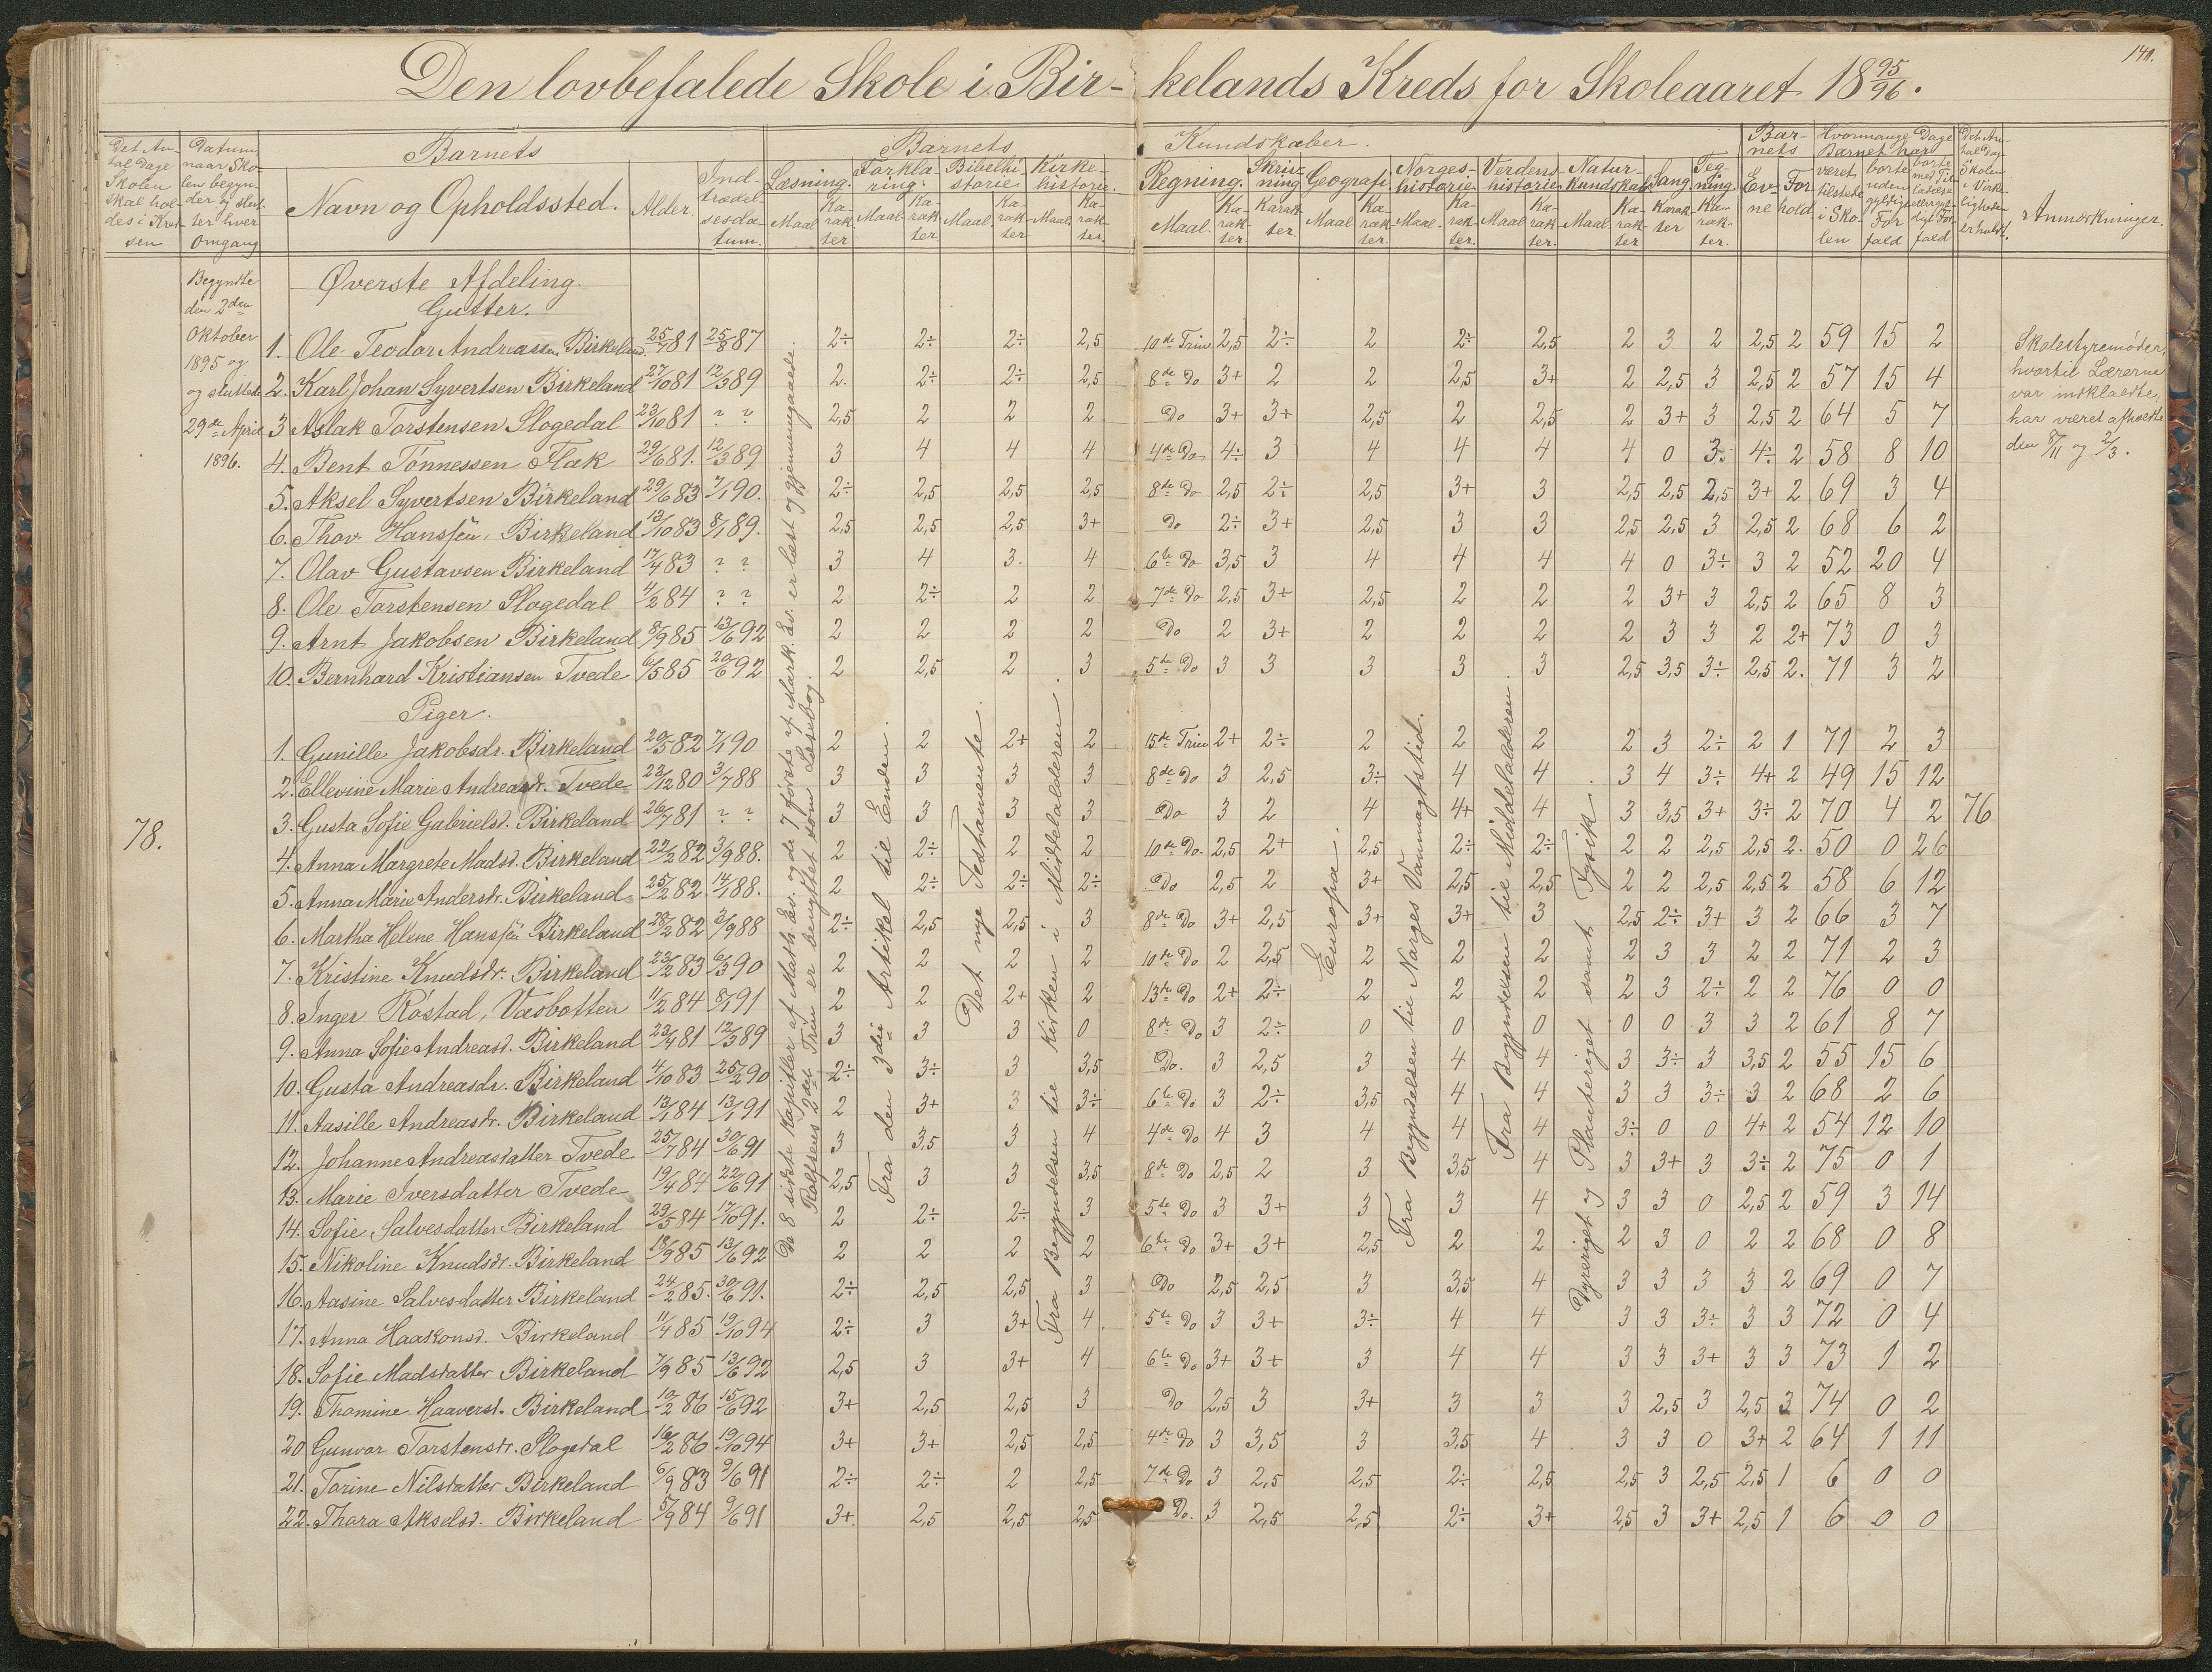 141.
Den lovbefalede Skole i Bir- kelands Kreds for Skoleaaret 18 95/96.
Det An- tal Dage Skolen skal hol- des i Kred- sen
Datum naar Sko- len begyn- der og slut- ter hver Omgang
Barnets
Navn og Opholdssted. Alder. Ind- trædel- sesda- tum.
Barnets Kundskaber.
Læsning. Maal Ka- rak- ter
Forkla- ring. Maal Ka- rak- ter
Bibelhi- storie Maal. Ka- rak- ter
Kirke- historie. Maal. Ka- rak- ter.
Regning. Maal. Ka- rak- ter.
Skriv- ning Karak- ter.
Geografi Maal Ka- rak- ter.
Norges- historie Maal. Ka- rak- ter.
Verdens- historie Maal Ka- rak- ter.
Natur- kundskab Maal Ka- rak- ter
Sang. Karak- ter
Teg- ning. Ka- rak- ter.
Bar- nets Ev- ne For- hold
Hvormange Dage Barnet har
været tilstede i Sko- len
borte uden gyldigt For- fald
borte med Til- ladelse eller gyl- digt For- fald
Det An- tal Dage Skolen i Virke- ligheden er holdt.
Anmærkninger.
Begyndte den 2den Oktober 1895 og og sluttede 29de April 1896.
78.
Øverste Afdeling.
Gutter.
1. Ole Teodor Andreassen Birkeland 25/7 81 25/8 87 2÷ 2÷ 2÷ 2,5 10de Trin 2,5 2÷ 2 2÷ 2,5 2 3 2 2,5 2 59 15 2
2. Karl Johan Syvertsen Birkeland 27/10 81 12/3 89 2. 2÷ 2÷ 2,5 8de Do 3+ 2 2 2,5 3+ 2 2,5 3 2,5 2 57 15 4
3 Aslak Torstensen Slogedal 23/10 81 ? ? 2,5 2 2 2 Do 3+ 3+ 2,5 2 2,5 2 3+ 3 2,5 2 64 5 7
4. Bent Tønnessen Flak 29/6 81. 12/3 89 3 4 4 4 4de Do 4÷ 3 4 4 4 4 0 3. 4÷ 2 58 8 10
5. Aksel Syvertsen Birkeland 29/6 83 7/1 90. 2÷ 2,5 2,5 2,5 8de Do 2,5 2÷ 2,5 3+ 3 2,5 2,5 2,5 3+ 2 69 3 4
6. Thov. Hanssen, Birkeland 13/10 83 8/1 89. 2,5 2,5 2,5 3+ Do 2÷ 3+ 2,5 3 3 2,5 2,5 3 2,5 2 68 6 2
7. Olav Gustavsen Birkeland 17/4 83 ? ? 3 4 3. 4 6te Do 3,5 3 4 4 4 4 0 3÷ 3 2 52 20 4
8. Ole Torstensen Slogedal 11/2 84 ? ? 2 2÷ 2 2 7de Do 2,5 3+ 2,5 2 2 2 3+ 3 2,5 2 65 8 3
9. Arnt Jakobsen Birkeland 8/9 85 13/6 92 2 2 2 2 Do 2 3+ 2 2 2 2 3 3 2 2+ 73 0 3
10. Bernhard Kristiansen Tvede 6/5 85 20/6 92 2 2,5 2 3 5te Do 3 3 3 3 3 2,5 3,5 3÷ 2,5 2. 71 3 2
Piger.
1. Gunille Jakobsdr. Birkeland 20/5 82 7/1 90 2 2 2+ 2 15de Trin 2+ 2÷ 2 2 2 2 3 2÷ 2 1 71 2 3
2. Ellevine Marie Andreasd. Tvede 23/12 80 3/7 88 3 3 3 3 8de Do 3 2,5 3÷ 4 4 3 4 3÷ 4+ 2 49 15 12
3. Gusta Sofie Gabrielsd. Birkeland 26/7 81 ? ? 3 3 3 3 Do 3 2 4 4+ 4 3 3,5 3+ 3÷ 2 70 4 2 76
4. Anna Margrete Madsd. Birkeland 22/2 82 3/9 88. 2 2÷ 2 2 10de Do. 2,5 2+ 2,5 2÷ 2÷ 2 2 2,5 2,5 2. 50 0 26
5. Anna Marie Andersdr. Birkeland 25/2 82. 14/1 88. 2 2÷ 2÷ 2÷ Do 2,5 2 3+ 2,5 2,5 2 2 2,5 2,5 2 58 6 12
6. Martha Helene Hanssen Birkeland 28/2 82 3/9 88 2÷ 2,5 2,5 3 8de Do 3+ 2,5 3+ 3+ 3 2,5 2÷ 3+ 3 2 66 3 7
7. Kristine Knudsdr. Birkeland 23/2 83 6/3 90 2 2 2 2 10de Do 2 2,5 2 2 2 2 3 3 2 2 71 2 3
8. Inger Røstad, Væsbotten 11/2 84 8/1 91 2 2 2+ 2 13de Do 2+ 2÷ 2 2 2 2 3 2÷ 2 2 76 0 0
9. Anna Sofie Andreasd. Birkeland 23/4 81 12/3 89 3 3 3 0 8de Do 3 2÷ 0 0 0 0 0 3 3 2 61 8 7
10. Gusta Andreasdr. Birkeland 4/10 83 25/2 90 2÷ 3÷ 3 3,5 Do. 3 2,5 3 4 4 3 3÷ 3 3,5 2 55 15 6
11. Aasille Andreasdr. Birkeland 13/1 84 13/1 91 2 3+ 3 3÷ 6te Do 3 2÷ 3,5 4 4 3 3 3÷ 3 2 68 2 6
12. Johanne Andreasdatter Tvede 25/7 84 30/6 91 3 3,5 3 4 4de Do 4 3 4 4 4 3÷ 0 0 4+ 2 54 12 10
13. Marie Iversdatter Tvede 19/4 84 22/6 91 2,5 3 3 3,5 8de Do 2,5 2 3 3,5 4 3 3+ 3 3÷ 2 75 0 1
14. Sofie Salvesdatter Birkeland 29/5 84 17/10 91. 2 2÷ 2÷ 3 5te Do 3 3+ 3 3 4 3 3 0 2,5 2 59 3 14
15. Nikoline Knudsdr. Birkeland 18/9 85 13/6 92 2 2 2 2 6te Do 3+ 3+ 2,5 2 2 2 3 0 2 2 68 0 8
16. Aasine Salvesdatter Birkeland 24/2 85. 30/6 91. 2÷ 2,5 2,5 3 Do 2,5 2,5 3 3,5 4 3 3 3 3 2 69 0 7
17. Anna Haakonsd. Birkeland 11/4 85 19/10 94 2÷ 3 3+ 4. 5te Do 3 3+ 3÷ 4 4 3 3 3÷ 3 3 72 0 4
18. Sofie Madsdatter Birkeland 7/9 85 13/6 92 2,5 3 3+ 4 6te Do 3+ 3+ 3 4 4 3 3 3+ 3 3 73 1 2
19. Thomine Haaversd. Birkeland 10/2 86 15/6 92 3+ 2,5 2,5 3 Do 2,5 3 3+ 3 3 3 2,5 3 2,5 3 74 0 2
20 Gunvor Torstensdr. Slogedal 16/2 86 19/10 94 3+ 3+ 2,5 2,5 4de Do 3 3,5 3 3,5 4 3 3 0 3+ 2 64 1 11
21. Torine Nilsdatter Birkeland 6/9 83 9/6 91 2÷ 2÷ 2 2,5 7de Do 3 2,5 2,5 2÷ 2,5 2,5 3 2,5 2,5 1 6 0 0
22. Thora Akselsd. Birkeland 5/9 84 9/6 91 3+ 2,5 2,5 2,5 Do. 3 2,5 2,5 2÷ 3+ 2,5 3 3+ 2,5 1 6 0 0
De 8 sidste Kapitler af Math. Ev. og de 7 første af Mark. Ev. er læst og gjennemgaaede.
Rolfsens 2det Trin er benyttet som Læsebog.
Fra den 3die Artikel til Enden.
Det nye Testamente.
Fra Begyndelsen til Kirken i Middelalderen.
Europa.
Fra Begyndelsen til Norges Vanmagtstid.
Fra Begyndelsen til Middelalderen.
Dyreriget og Planteriget samt Fysik.
Skolestyremøder,
hvortil Lærerne
var indkladte,
har været afholdte
den 8/11 og 2/3.